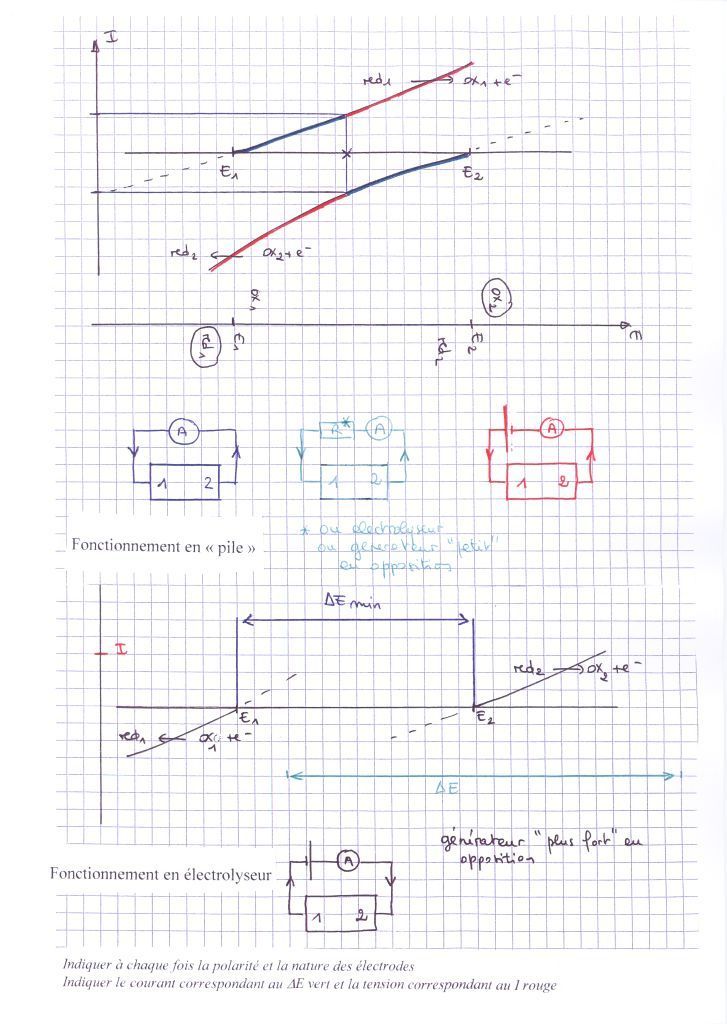 I
red₁ → ox₁ + e⁻
E₁
E₂
red₂ ← ox₂ + e⁻
ox₁
ox₂
red₁
E₁
red₂
E₂
E
A
R* A
A
1 2
1 2
1 2
* ou électrolyseur
Fonctionnement en « pile »
ou générateur "petit"
en opposition
ΔE min
I
red₂ → ox₂ + e⁻
E₁
E₂
red₁ ← ox₁ + e⁻
ΔE
générateur "plus fort" en
opposition
A
Fonctionnement en électrolyseur
1 2
Indiquer à chaque fois la polarité et la nature des électrodes
Indiquer le courant correspondant au ΔE vert et la tension correspondant au I rouge